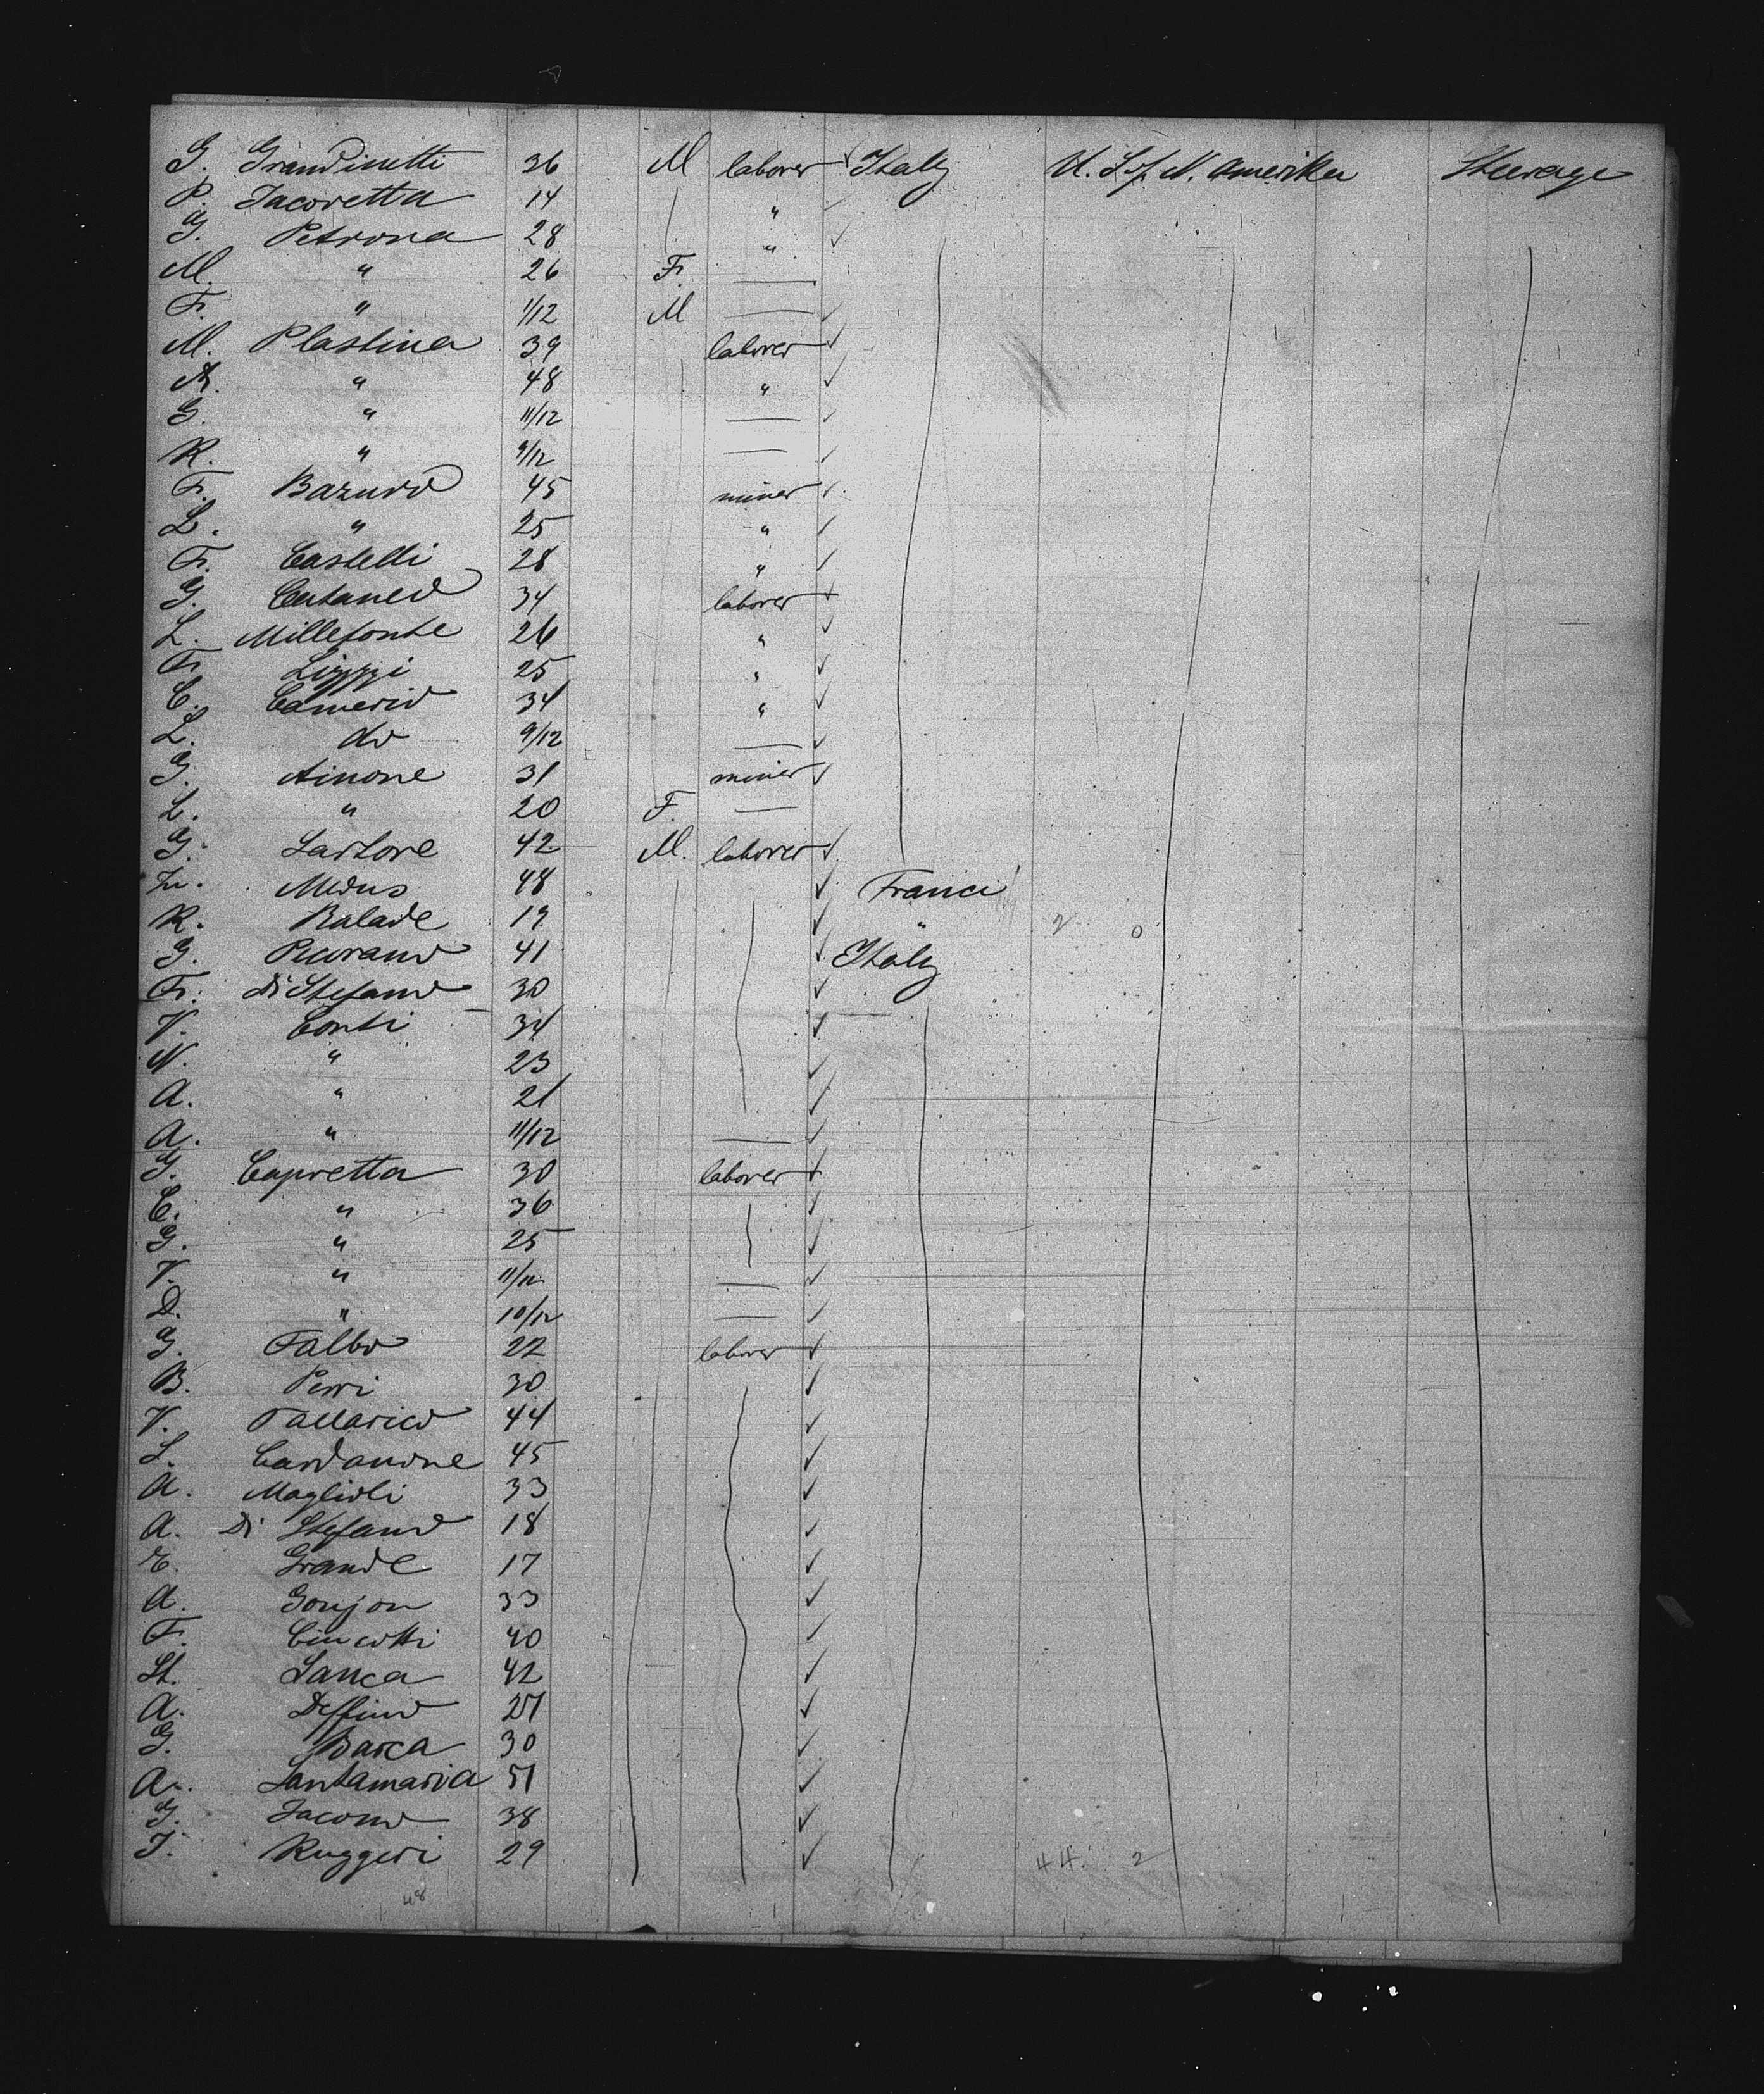 G. Grandinetti 36 M laborer Italy U. S. of N. Amerika Steerage
P. Jacoretta 14 "
G. Petrona 28 "
M. " 26 F. —
F. " 1/12 M —
M. Plastina 39 laborer
A. " 48 "
G. " 11/12 —
R. " 9/12 —
F. Bazuro 45 miner
L. " 25 "
F. Castelli 28 "
G. Cutaneo 34 laborer
L. Millefonte 26 "
F. Lizzzi 25 "
C. Camerio 34 "
L. do 9/12 —
G. Ainone 31 miner
L. " 20 F. —
G. Sartore 42 M. laborer
48 France
R. Balade 19 " 2 0
G. Pecorano 41 Italy
F. Di Stefano 30
V. Conti 34
N. " 23
A. " 21
A. " 11/12 —
G. Capretta 30 laborer
C. " 36
G. " 25
V. " 11/12 —
D. " 10/12 —
G. Falbo 22 laborer
B. Perri 30
V. Tallarico 44
S. Cardamone 45
A. Maglioli 33
A. Di Stefano 18
E. Grande 17
A. Goujon 33
F. Cincotti 40
St. Sanca 42
A. Deffino 27
G. Barca 30
A. Santamaria 51
G. Jacono 38
J. Ruggeri 29 44 2
48